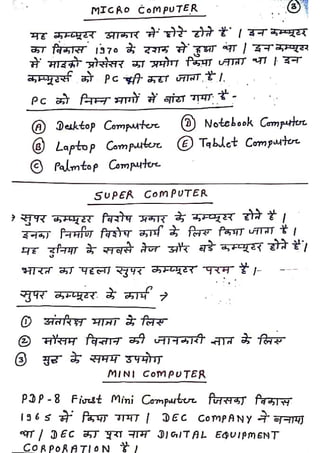 MICRO COMPUTER
3
यह कम्प्यूटर आकार में छोटे होते हैं | इन कम्प्यूटर
का विकास 1970 के दशक में हुआ था | इन कम्प्यूटर
में माइक्रो प्रोसेसर का प्रयोग किया जाता था | इन
कम्प्यूटर्स को PC भी कहा जाता है |
PC को निम्न भागों में बांटा गया है -
A Desktop Computer
D Notebook Computer
B Laptop Computer
E Tablet Computer
C Palmtop Computer
SUPER COMPUTER
सुपर कम्प्यूटर विशेष प्रकार के कम्प्यूटर होते है |
इनका निर्माण विशेष कार्य के लिए किया जाता है |
यह दुनिया के सबसे तेज और बड़े कम्प्यूटर होते हैं|
भारत का पहला सुपर कम्प्यूटर परम है |-
सुपर कम्प्यूटर के कार्य →
1 अंतरिक्ष यात्रा के लिए
2 मौसम विज्ञान की जानकारी ज्ञात के लिए
3 युद्ध के समय उपयोग
MINI COMPUTER
PDP-8 First Mini Computer जिसका विकास
1965 में किया गया | DEC COMPANY ने बनाया
था | DEC का पूरा नाम DIGITAL EQUIPMENT
CORPORATION है |